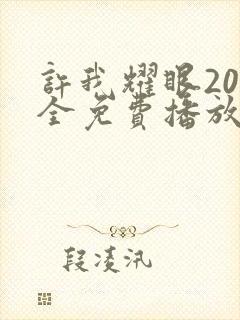 許我耀眼20
全免費播放
段凌汛